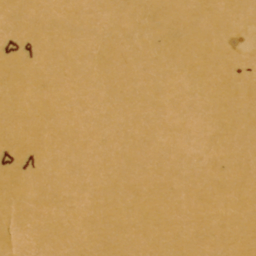 ۵۹
۵۸